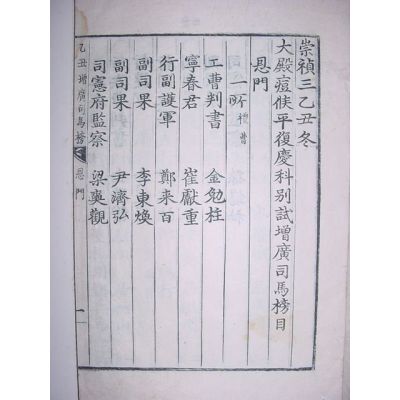 崇禎三乙丑冬
大殿痘候平復慶科別試增廣司馬榜目
恩門
一所 禮曹
工曹判書 金勉柱
寧春君 崔獻重
行副護軍 鄭來百
副司果 李東煥
副司果 尹濟弘
司憲府監察 梁奭觀
乙丑增廣司馬榜 恩門 一